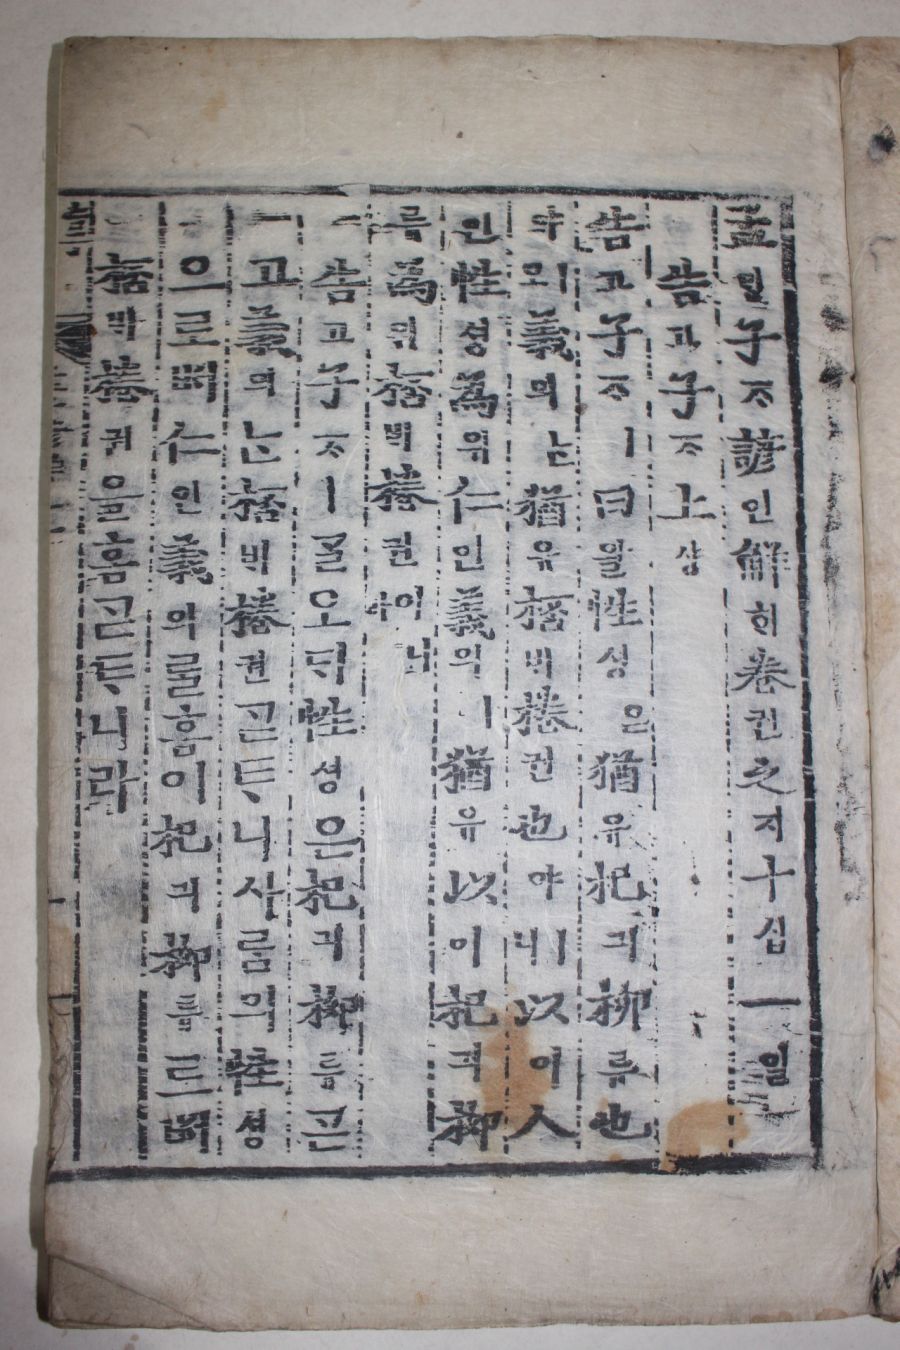 孟밍子ᄌᆞ諺언解ᄒᆡ卷권之지十십一일
告고子ᄌᆞ上샹
告고子ᄌᆞㅣ曰왈性셩은猶유杞긔柳류也
야오義의ᄂᆞᆫ猶유桮ᄇᆡ棬권也야ㅣ니以이人
인性셩爲위仁인義의ㅣ猶유以이杞긔柳
류爲위桮ᄇᆡ棬권이니라
告고子ᄌᆞㅣᄀᆞᆯ오ᄃᆡ性셩은杞긔柳류ᄀᆞᆮ
고義의ᄂᆞᆫ桮ᄇᆡ棬권ᄀᆞᆮᄐᆞ니사ᄅᆞᆷ의性셩
으로ᄡᅥ仁인義의ᄅᆞᆯᄒᆞᆷ이杞긔柳류로ᄡᅥ
桮ᄇᆡ棬권을ᄒᆞᆷᄀᆞᆮᄐᆞ니라